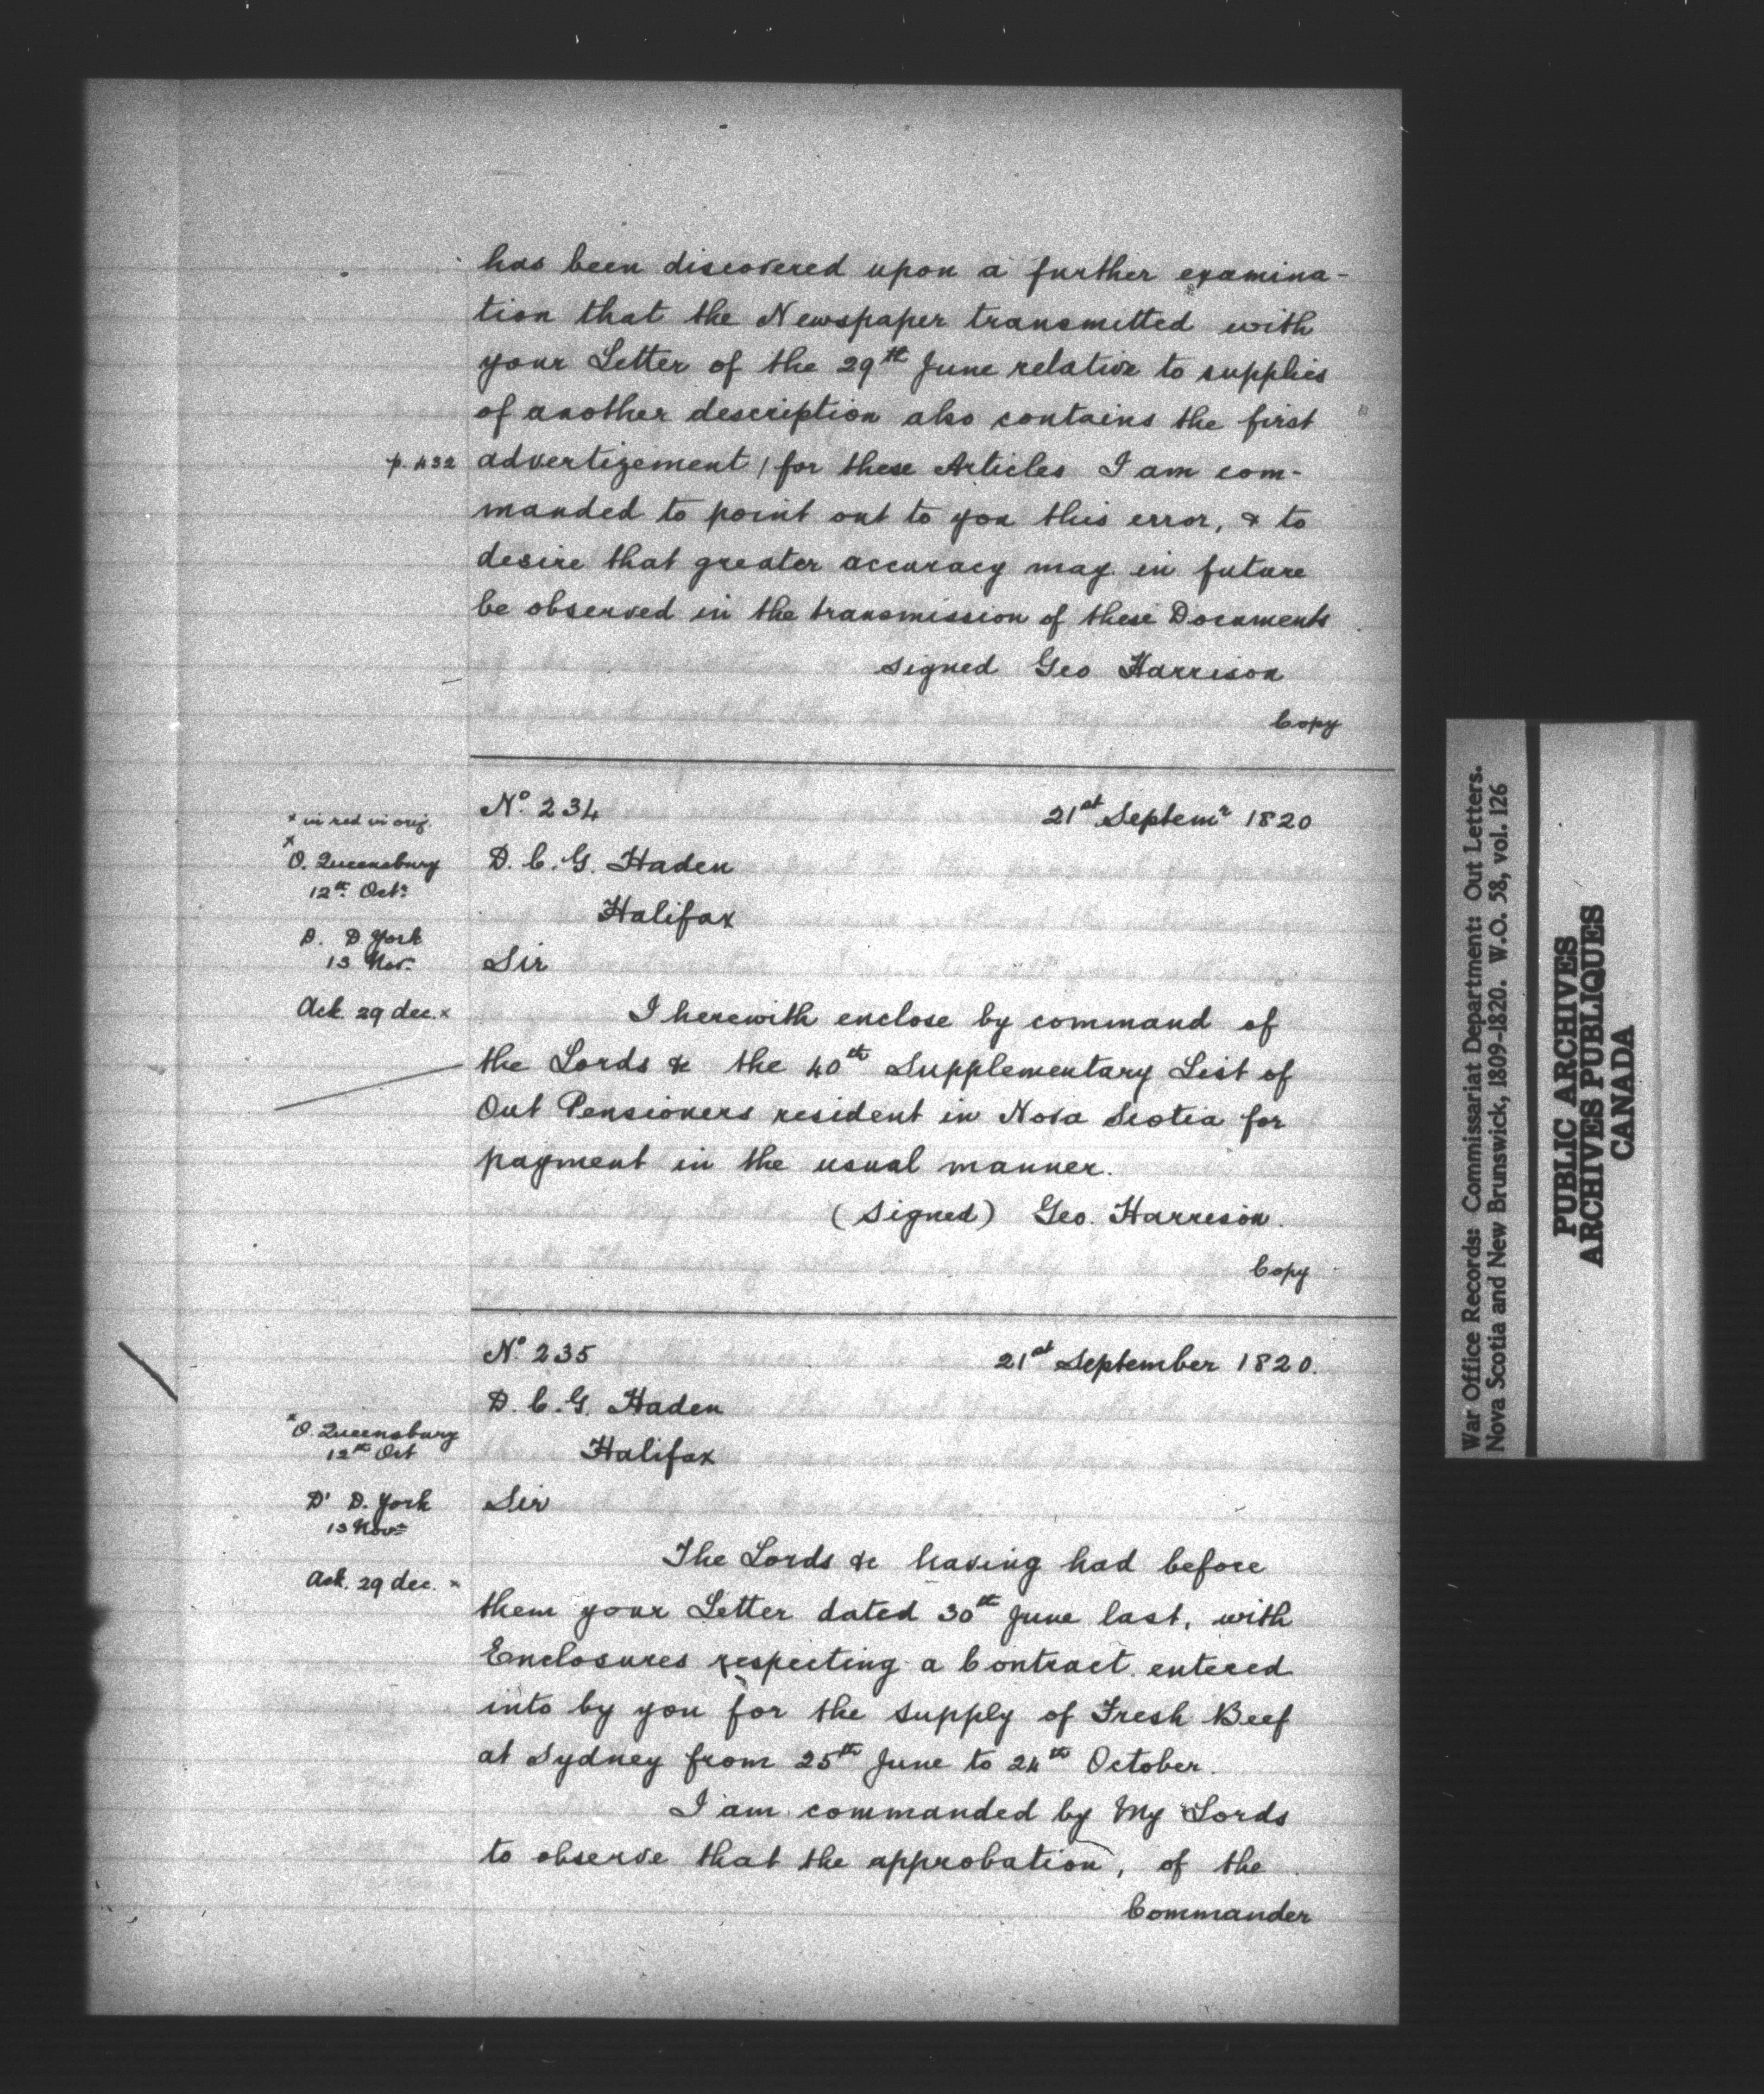 has been discovered upon a further examina-
tion that the Newspaper transmitted with
your Letter of the 29th June relative to supplies
of another description also contains the first
p. 432 advertizement / for these Articles I am com-
manded to point out to you this error, & to
desire that greater accuracy may in future
be observed in the transmission of these Documents
signed Geo Harrison
Copy
No. 234 21st Septemr 1820
x in red in orig.
x
O. Queensbury
12th Octr
D. D. York
13 Nov.
Ack. 29 dec. x
D. C. G. Haden
Halifax
Sir
I herewith enclose by command of
the Lords &c the 40th Supplementary List of
Out Pensioners resident in Nova Scotia for
payment in the usual manner.
(signed) Geo. Harrison.
Copy
No. 235 21st September 1820.
D. C. G. Haden
Halifax
x O. Queensbury
12th Oct
D' D. York
13 Novr
Ack. 29 dec. x
Sir
The Lords &c having had before
them your Letter dated 30th June last, with
Enclosures respecting a Contract entered
into by you for the supply of Fresh Beef
at Sydney from 25th June to 24th October.
I am commanded by My Lords
to observe that the approbation, of the
Commander
War Office Records: Commissariat Department: Out Letters.
Nova Scotia and New Brunswick, 1809-1820. W.O. 58, vol. 126
PUBLIC ARCHIVES
ARCHIVES PUBLIQUES
CANADA